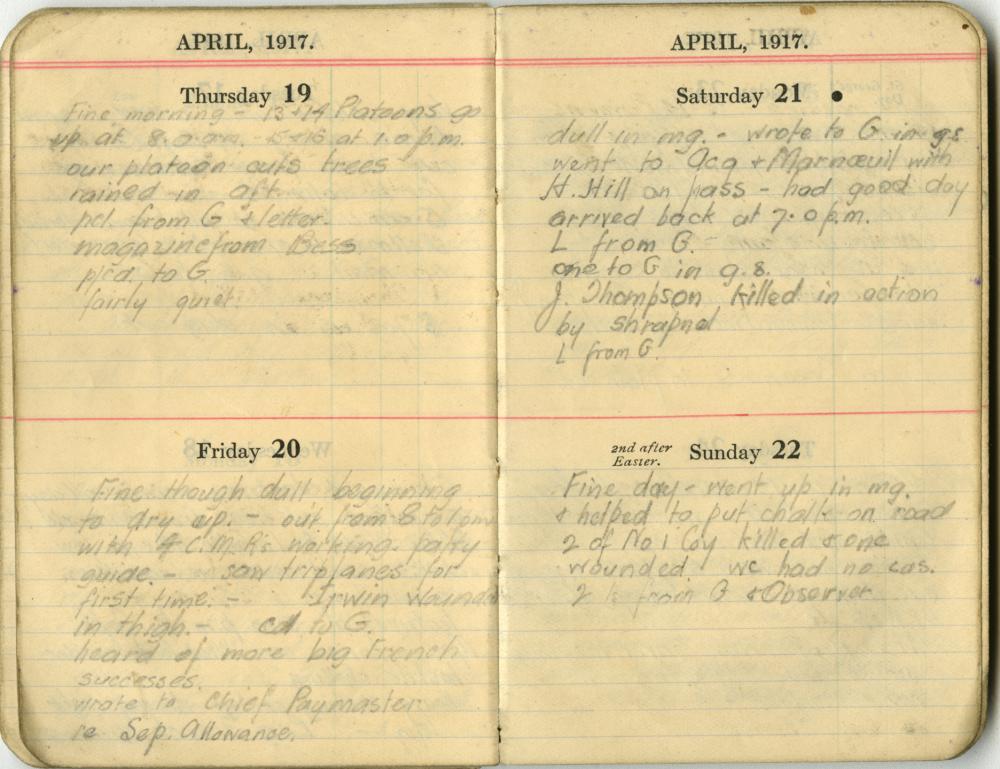 APRIL, 1917.
Thursday 19
Fine morning - 13 + 14 Platoons go
up at 8.0 a.m. - 15 + 16 at 1.0 p.m.
our platoon cuts trees
rained in aft.
pcl. from G + letter.
magazine from Bess
p'cd. to G.
fairly quiet.
Friday 20
Fine though dull beginning
to dry up. - out from 8 to 1 pm
with 4 C.M.R's working party
guide. - saw triplanes for
first time. - Irwin wounded
in thigh. - cd to G.
heard of more big French
successes.
wrote to Chief Paymaster
re Sep. Allowance.
APRIL, 1917.
Saturday 21
dull in mg. - wrote to G in g.s
went to Acq + Marnœuil with
H. Hill on pass - had good day
arrived back at 7.0 p.m.
L from G. -
one to G in g.s.
J. Thompson killed in action
by shrapnel
L from G.
2nd after Easter. Sunday 22
Fine day - went up in mg.
+ helped to put chalk on road
2 of No 1 Coy killed + one
wounded. we had no cas.
2 Ls from G + Observer